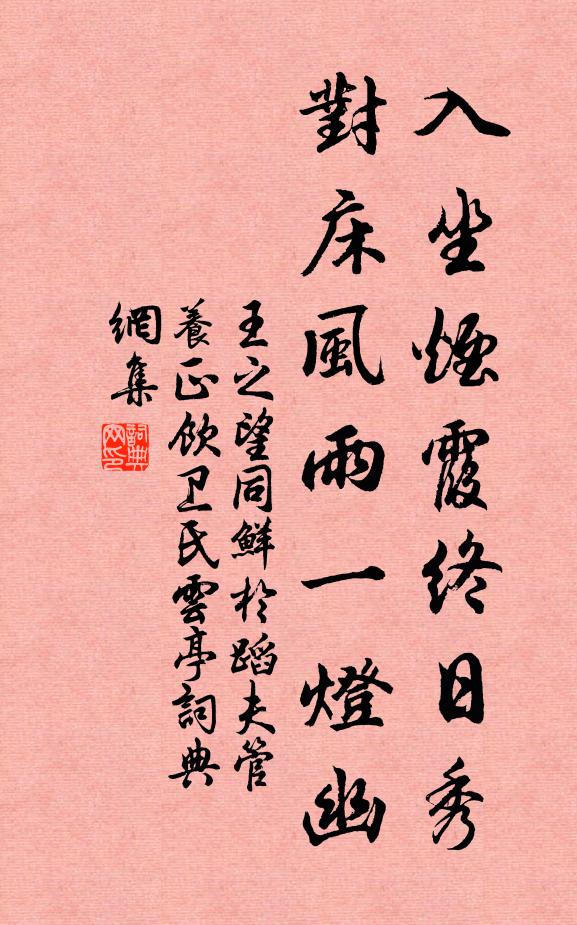 入坐煙霞終日秀
對床風雨一燈幽
王之望同鮮於蹈夫管
養正飲卫民雲亭詞典
網集
詞典
网印